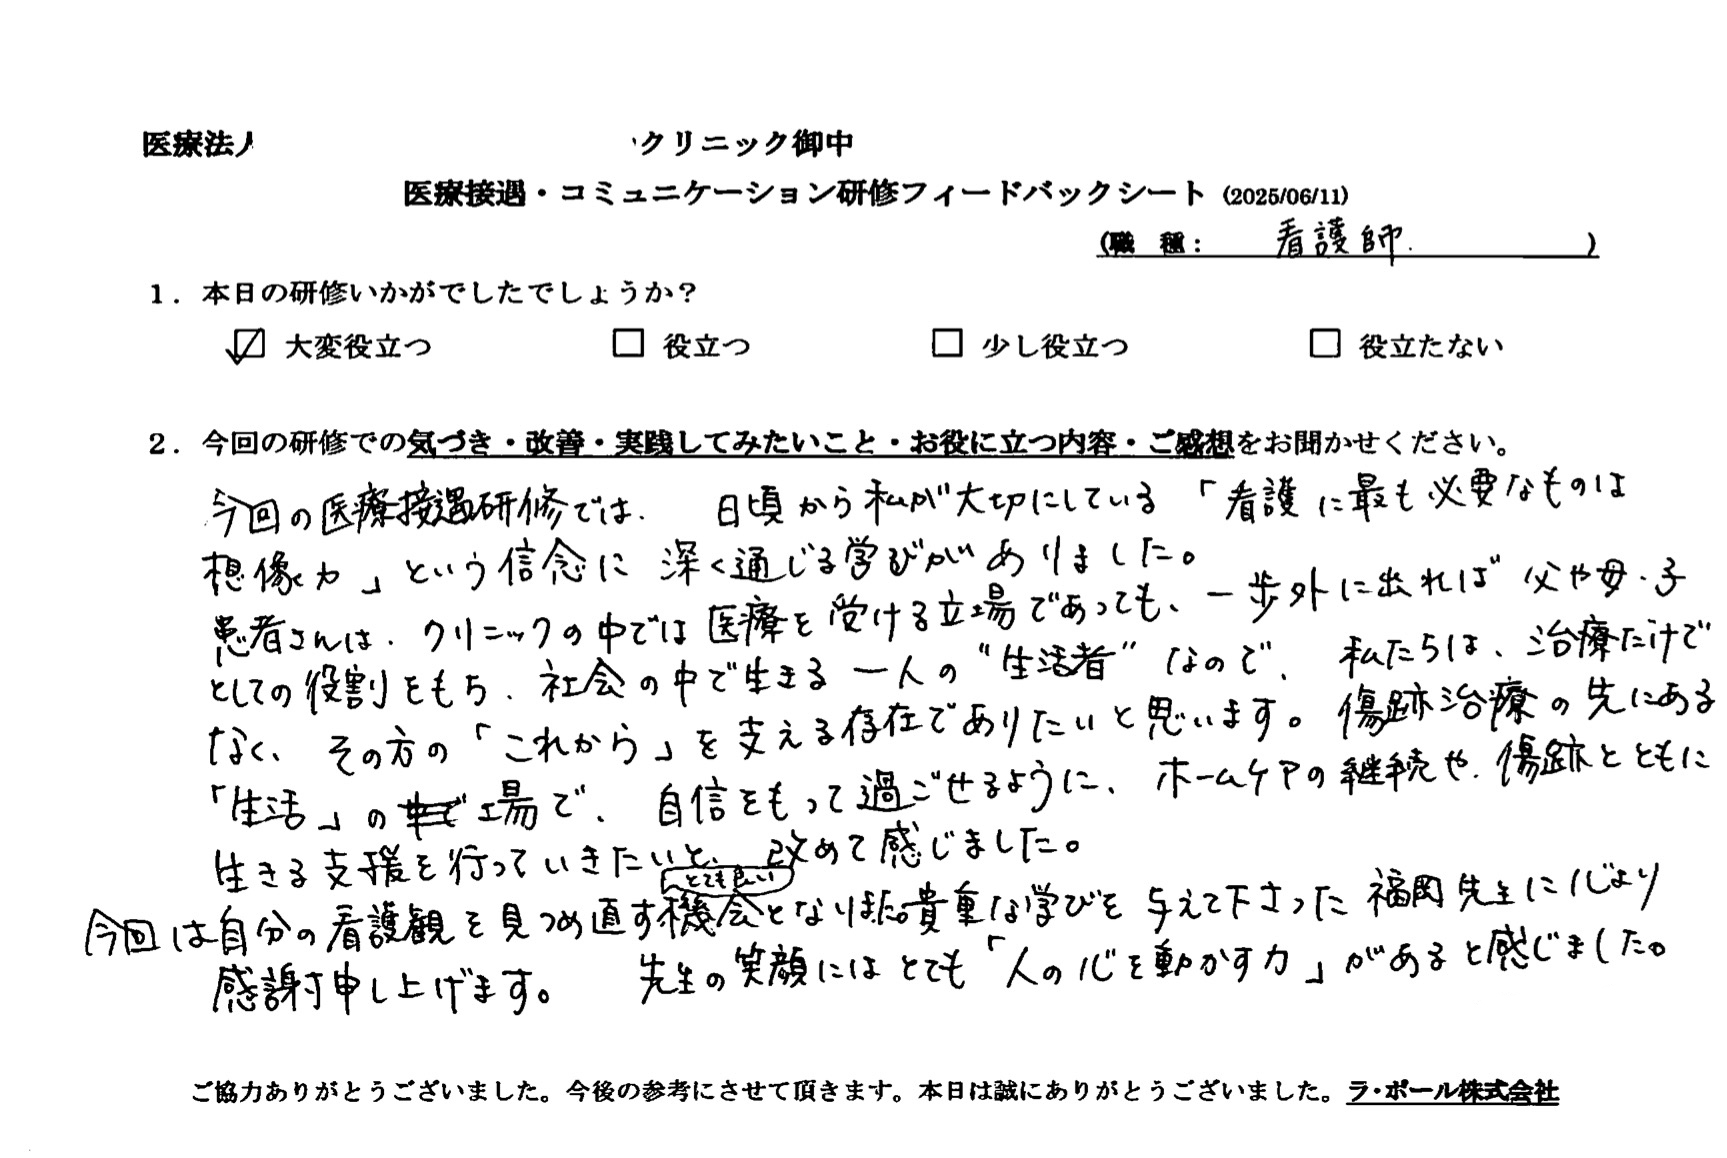 医療法人
クリニック御中
医療接遇・コミュニケーション研修フィードバックシート (2025/06/11)
(職 種: 看護師. )
1. 本日の研修いかがでしたでしょうか?
☑ 大変役立つ □ 役立つ □ 少し役立つ □ 役立たない
2. 今回の研修での気づき・改善・実践してみたいこと・お役に立つ内容・ご感想をお聞かせください。
今回の医療接遇研修では、日頃から私が大切にしている「看護に最も必要なものは
想像力」という信念に深く通じる学びがありました。
患者さんは、クリニックの中では医療を受ける立場であっても、一歩外に出れば父や母・子
としての役割をもち、社会の中で生きる一人の"生活者"なので、私たちは、治療だけで
なく、その方の「これから」を支える存在でありたいと思います。傷跡治療の先にある
「生活」の場で、自信をもって過ごせるように、ホームケアの継続や、傷跡とともに
生きる支援を行っていきたいと、改めて感じました。
とても良い
今回は自分の看護観を見つめ直す機会となりました。貴重な学びを与えて下さった福岡先生に心より
感謝申し上げます。先生の笑顔にはとても「人の心を動かす力」があると感じました。
ご協力ありがとうございました。今後の参考にさせて頂きます。本日は誠にありがとうございました。ラ・ポール株式会社